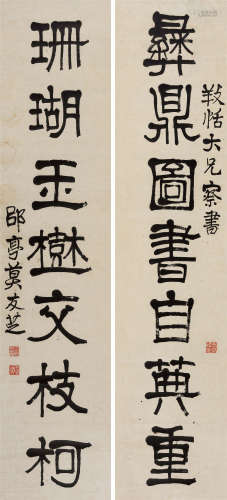 彝鼎圖書自典重
恬大兄察書
珊瑚玉樹交枝柯
郘亭莫友芝